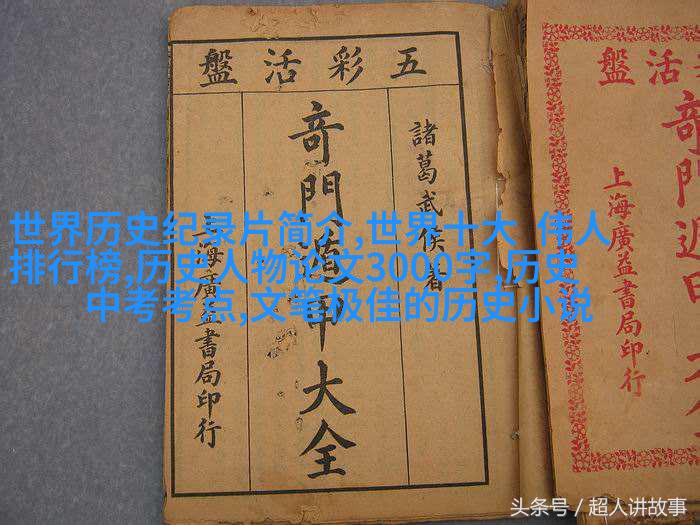 五彩活盤
諸葛武侯著
奇門遁甲大全
上海廣益書局印行
活盤
奇門遁甲
上海廣益書局印行
世界历史纪录片简介,世界十大 伟人
排行榜,历史人物论文3000字,历史
中考考点,文笔极佳的历史小说
头条号 / 超人讲故事